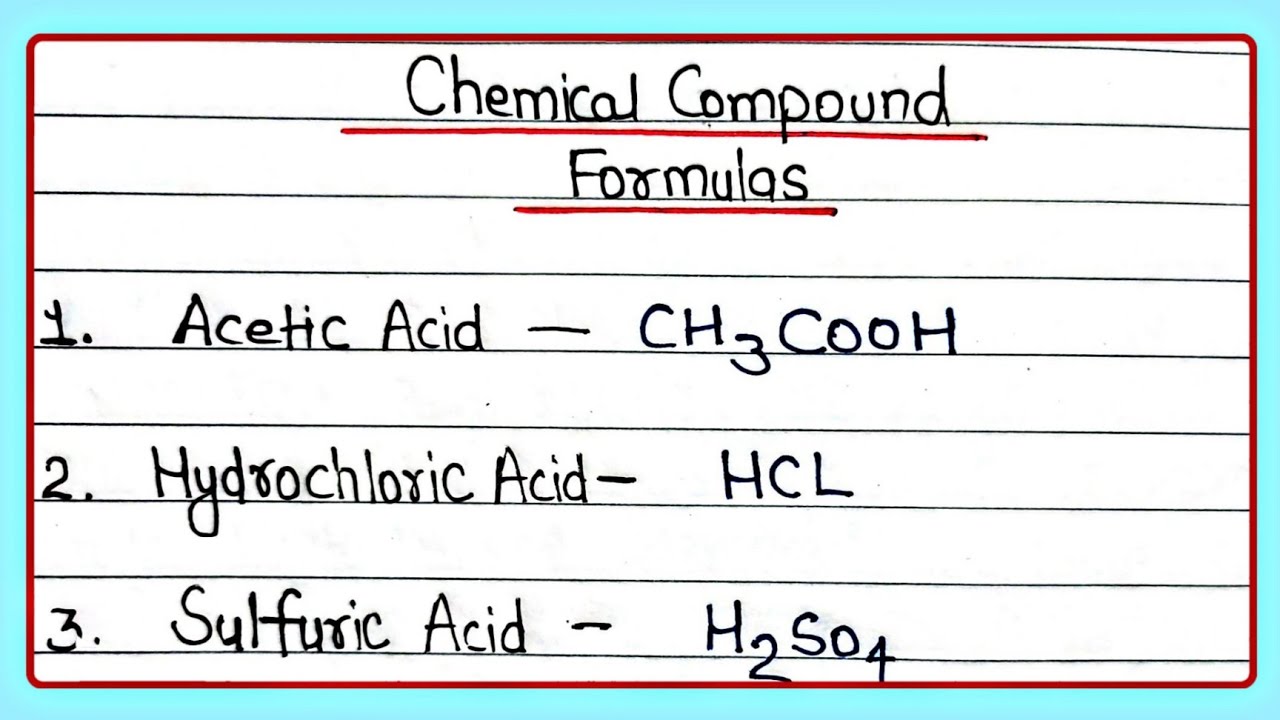 Chemical Compound
Formulas
1. Acetic Acid — CH₃COOH
2. Hydrochloric Acid - HCL
3. Sulfuric Acid - H₂SO₄